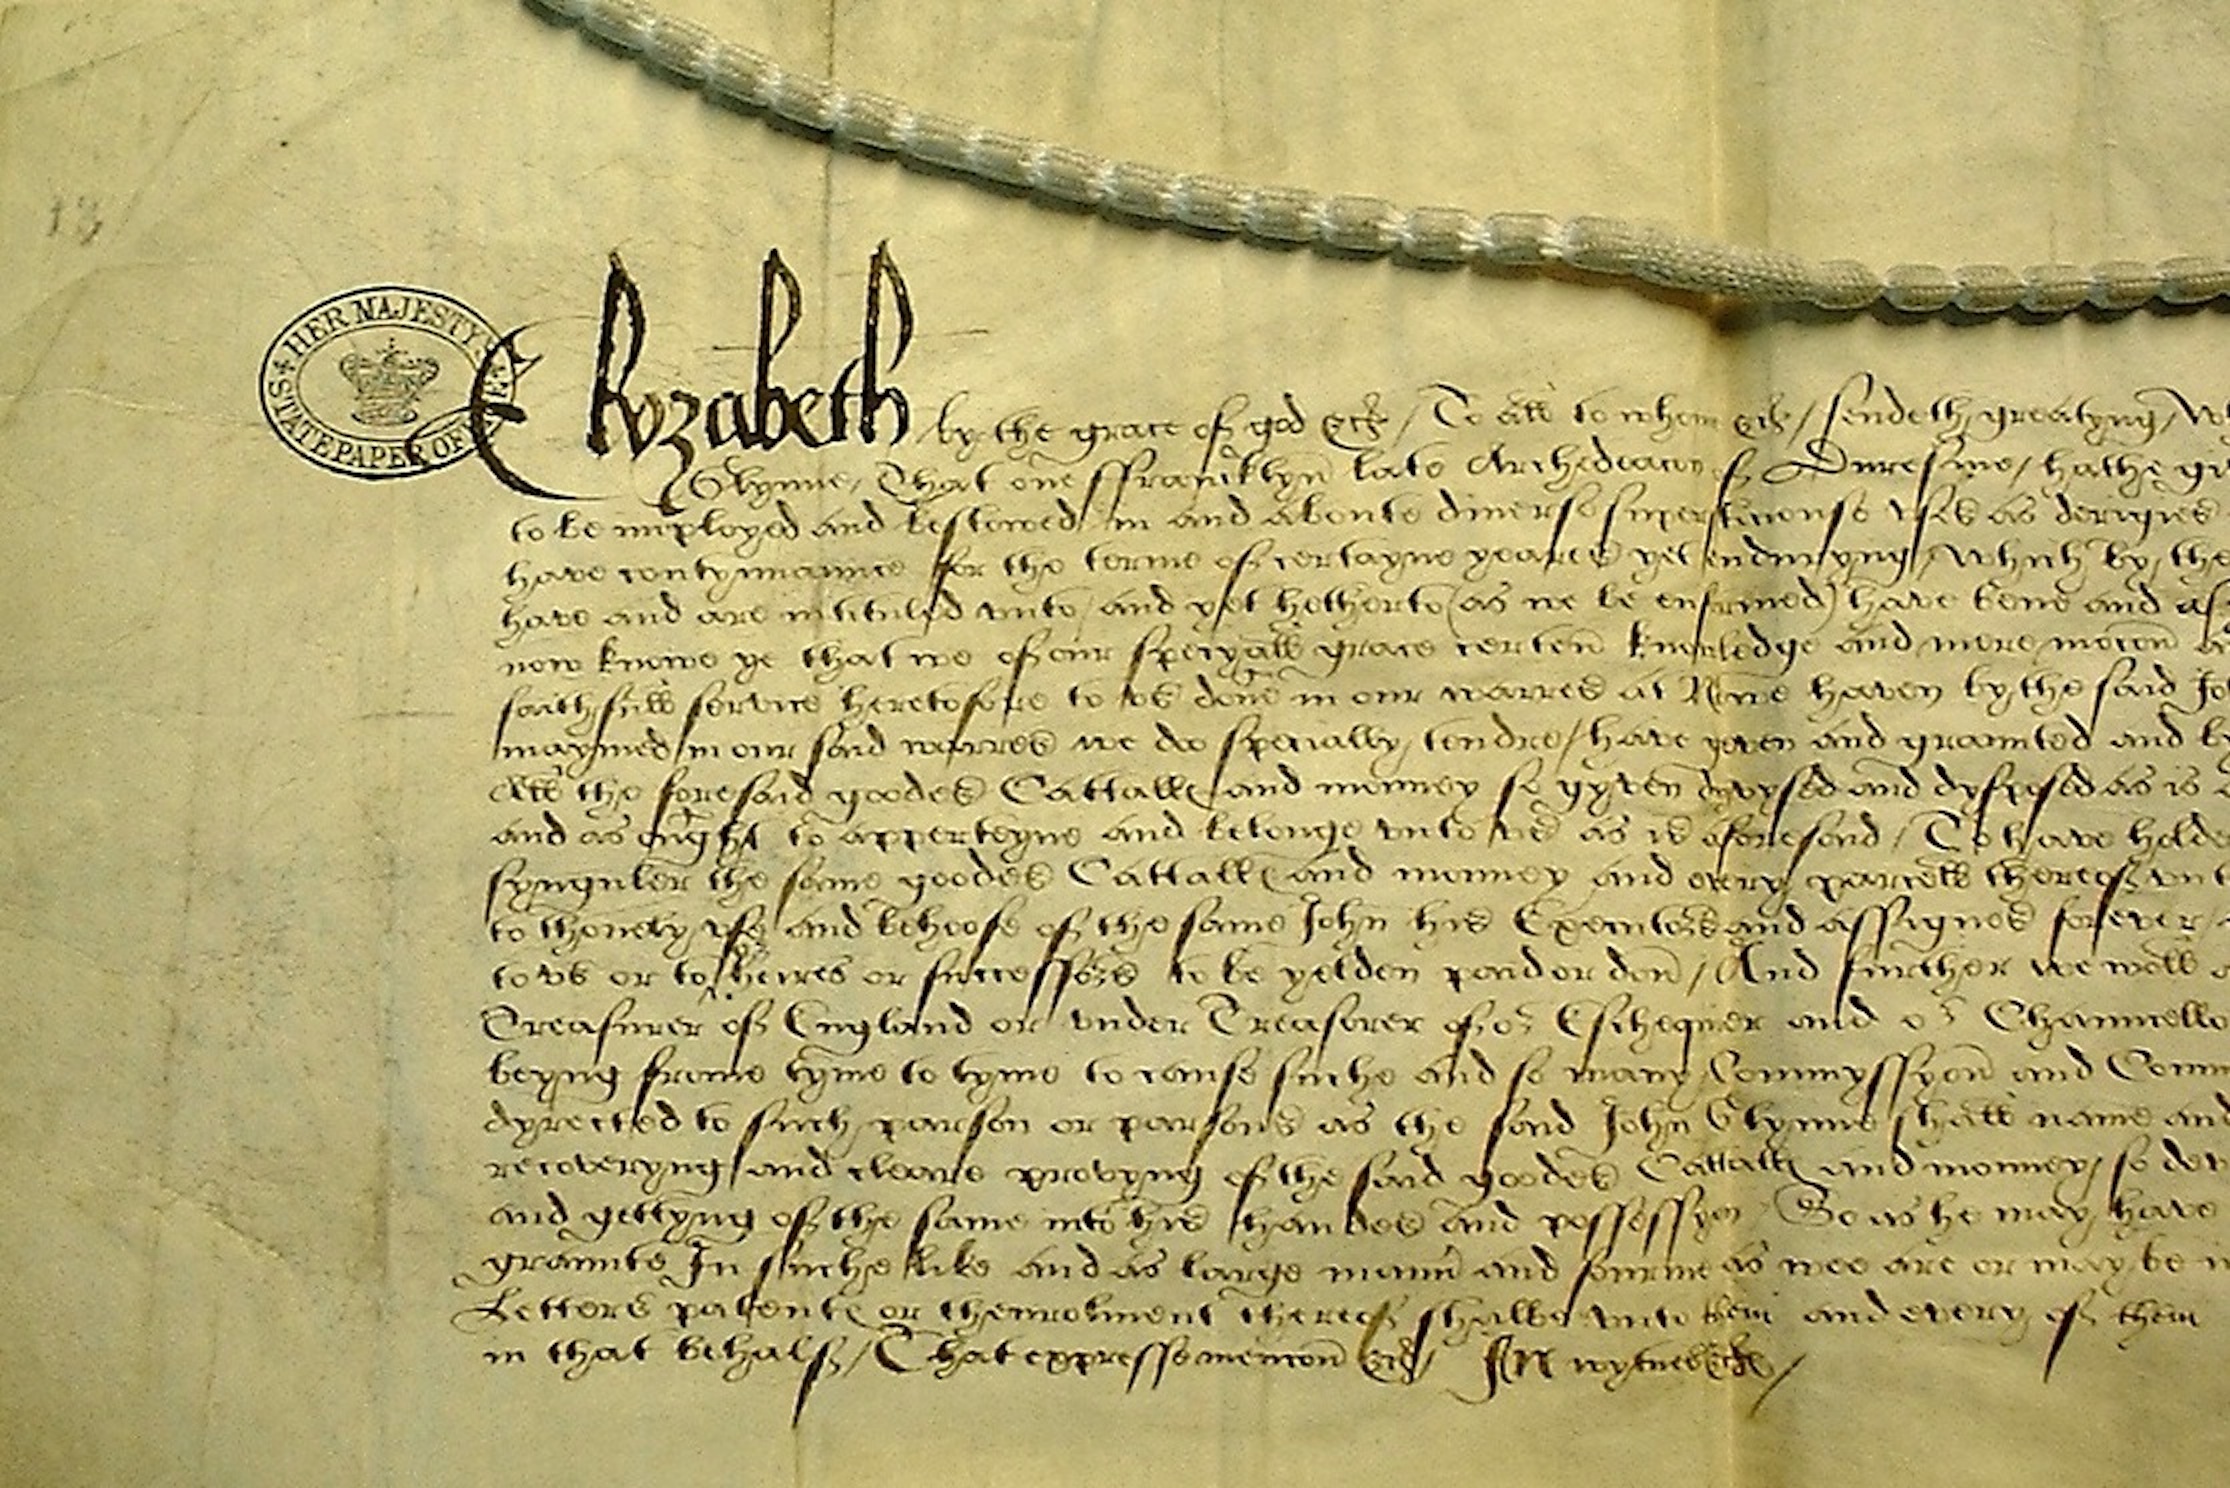 18
HER MAJESTY'S STATE PAPER OFFICE
Elyzabeth by the grace of god &c / To all to whom &c / sendeth greatyng /
Glynne, That one ffrancklyn late Archedeacon of Duresme / hathe
to be imployed and bestowed in and aboute diverse superstitiouse uses as dirigies
have contynnaunce for the terme of certayne yeares yet enduryng / which by the
have and are intituled unto / and yet hetherto (as we be enformed) have bene and
now knowe ye that we of our specyall grace certen knowledge and mere mocion
faithfull service heretofore to us done in our warres at Newe haven by the said
maymed in our said warres we do specially tendre / have yeven and graunted and
All the foresaid goodes Cattalles and monney so gyven devysed and dysposed as is
and as ought to apperteyne and belonge unto us as is aforesaid / To have
synguler the same goodes Cattalles and monney and every parcell thereof
to thonely use and behoofe of the same John his Executors and assignes forever
to us or to heires or successors to be yelden paid or don / And further we woll
Treasurer of England or under Treasorer of or Eschequier and or
beyng frome tyme to tyme to cause suche and so many Commyssyon and
dyrected to such parson or parsons as the said John Glynne shall name and
recoveryng and cleare provyng of the said goodes Cattalles and monney so
and gettyng of the same into his handes and possessyon / So as he may have
graunte In suche like and as large manner and fourme as wee are or may be
Letters patentes or thenrolment thereof shalbe unto them and every of them
in that behalf / That expresse mencion &c / In wytnes &c /